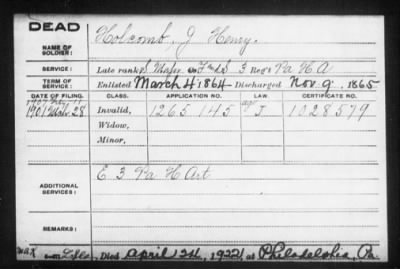 DEAD
NAME OF SOLDIER: Holcomb, J Henry.
SERVICE: Late rank, F and S 3 Reg't Pa H A
TERM OF SERVICE: Enlisted March 4 1864 Discharged Nov. 9, 1865
DATE OF FILING. CLASS. APPLICATION NO. LAW. CERTIFICATE NO.
1907
1901 28 Invalid, 1265145 J 1028579
Widow,
Minor,
ADDITIONAL SERVICES: E 3 Pa H Art
REMARKS:
Died April 24, 1922, at Philadelphia, Pa.